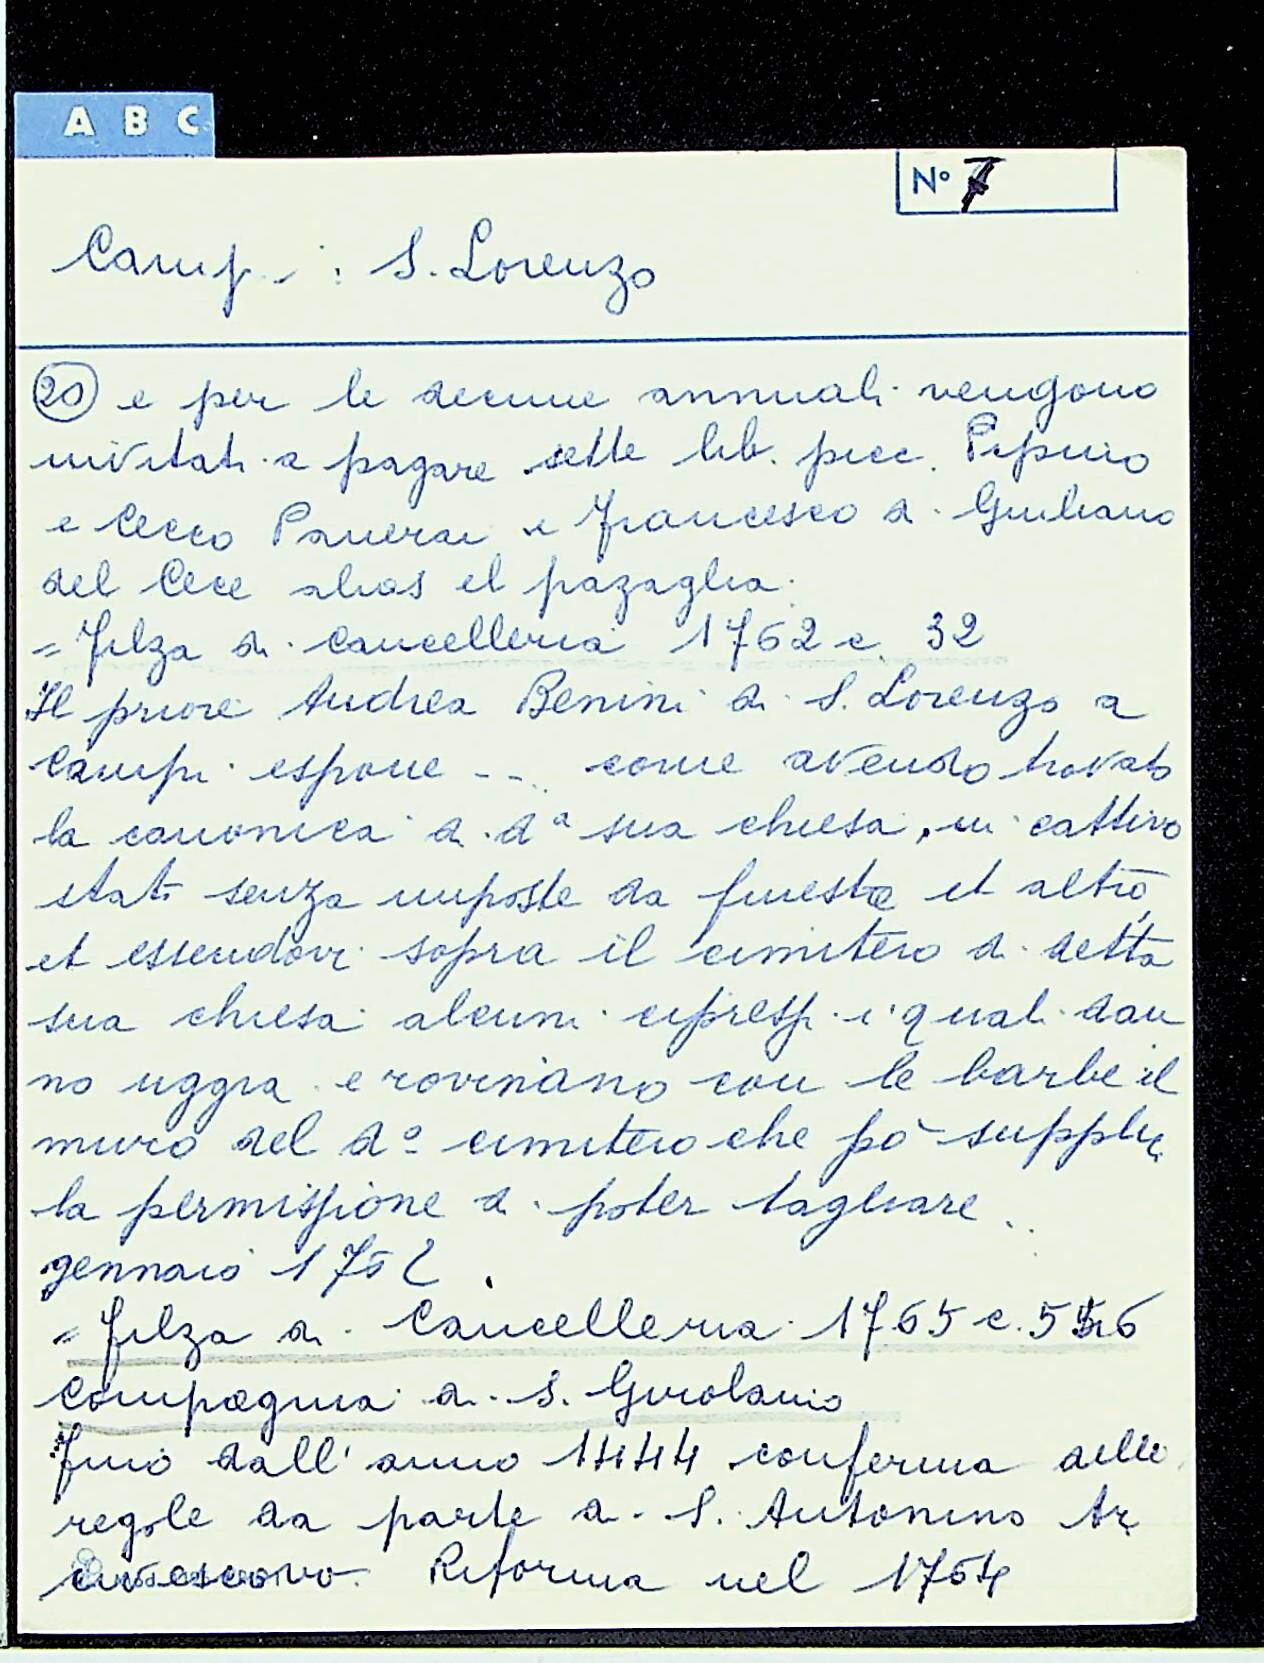 A B C
N° 7
Campi : S. Lorenzo
20 e per le decime annuali vengono
invitati a pagare sette lib. picc. Pipino
e Cecco Panerai e Francesco di Giuliano
del Cece alias el pazaglia.
= Filza di Cancelleria 1762 c. 32
Il priore Andrea Benini di S. Lorenzo a
Campi espone - .. come avendo trovato
la canonica di d.ª sua chiesa, in cattivo
stato senza imposte da finestre et altro,
et essendovi sopra il cimitero di detta
sua chiesa alcuni cipressi i quali dan
no uggia e rovinano con le barbe il
muro del d.º cimitero che pò supplic
la permissione di poter tagliare ..
gennaio 1762.
= Filza di Cancelleria 1765 c. 556
Compagnia di S. Girolamo
Fino dall'anno 1444 conferma delle
regole da parte di S. Antonino Ar
civescovo. Riforma nel 1764